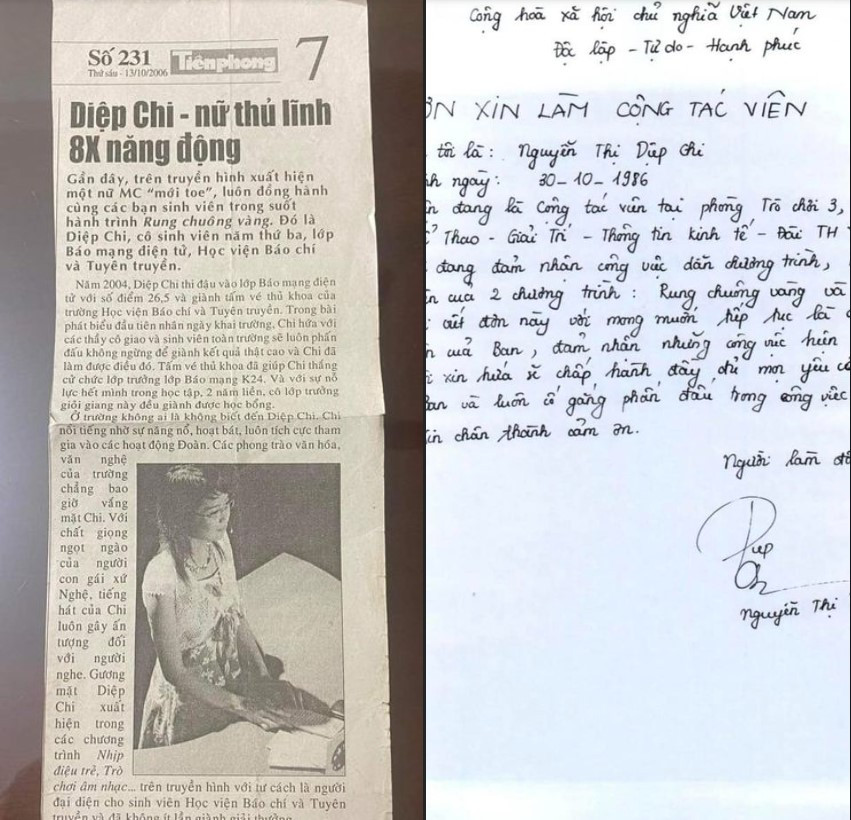 Số 231
Thứ sáu - 13/10/2006
Tiềnphong
7
Diệp Chi - nữ thủ lĩnh
8X năng động
Gần đây, trên truyền hình xuất hiện
một nữ MC “mới toe”, luôn đồng hành
cùng các bạn sinh viên trong suốt
hành trình Rung chuông vàng. Đó là
Diệp Chi, cô sinh viên năm thứ ba, lớp
Báo mạng điện tử, Học viện Báo chí
và Tuyên truyền.
Năm 2004, Diệp Chi thi đậu vào lớp Báo mạng điện
tử với số điểm 26,5 và giành tấm vé thủ khoa của
trường Học viện Báo chí và Tuyên truyền. Trong bài
phát biểu đầu tiên nhân ngày khai trường, Chi hứa với
các thầy cô giao và sinh viên toàn trường sẽ luôn phấn
đấu không ngừng để giành kết quả thật cao và Chi đã
làm được điều đó. Tấm vé thủ khoa đã giúp Chi thắng
cử chức lớp trưởng lớp Báo mạng K24. Và với sự nỗ
lực hết mình trong học tập, 2 năm liền, cô lớp trưởng
giỏi giang này đều giành được học bổng.
Ở trường không ai là không biết đến Diệp Chi. Chi
nổi tiếng nhờ sự năng nổ, hoạt bát, luôn tích cực tham
gia vào các hoạt động Đoàn. Các phong trào văn hóa,
văn nghệ
của trường
chẳng bao
giờ vắng
mặt Chi. Với
chất giọng
ngọt ngào
của người
con gái xứ
Nghệ, tiếng
hát của Chi
luôn gây ấn
tượng đối
với người
nghe. Gương
mặt Diệp
Chi xuất
hiện trong
các chương
trình Nhịp
điệu trẻ, Trò
chơi âm nhạc... trên truyền hình với tư cách là người
đại diện cho sinh viên Học viện Báo chí và Tuyên
truyền và đã không ít lần giành giải thưởng
Cộng hoà xã hội chủ nghĩa Việt Nam
Độc lập - Tự do - Hạnh phúc
ƠN XIN LÀM CỘNG TÁC VIÊN
tôi là : Nguyễn Thị Diệp Chi
h ngày : 30-10-1986
n đang là Cộng tác viên tại phòng Trò chơi 3,
Thao - Giải Trí - Thông tin kinh tế - Đài TH
đang đảm nhận công việc dẫn chương trình,
n của 2 chương trình : Rung chuông vàng và
viết đơn này với mong muốn tiếp tục là
n của Ban, đảm nhận những công việc hiện
i xin hứa sẽ chấp hành đầy đủ mọi yêu cầ
an và luôn cố gắng phấn đấu trong công việc
in chân thành cảm ơn.
Người làm đơ
Diệp
Ch
Nguyễn Thị